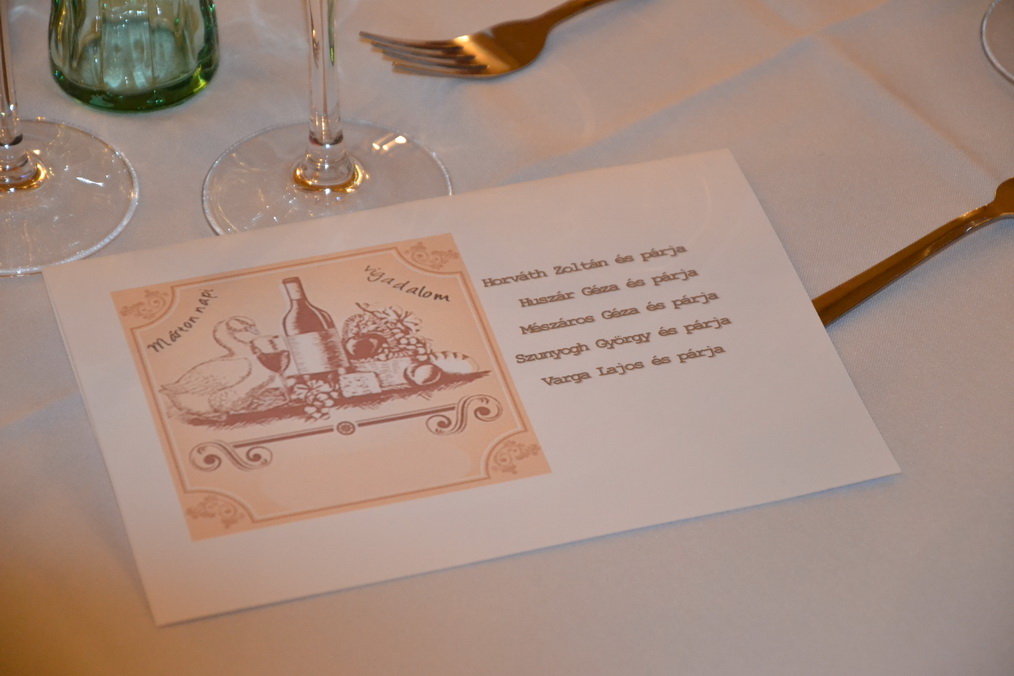 Mártonnapi
vigadalom
Horváth Zoltán és párja
Huszár Géza és párja
Mészáros Géza és párja
Szunyogh György és párja
Varga Lajos és párja